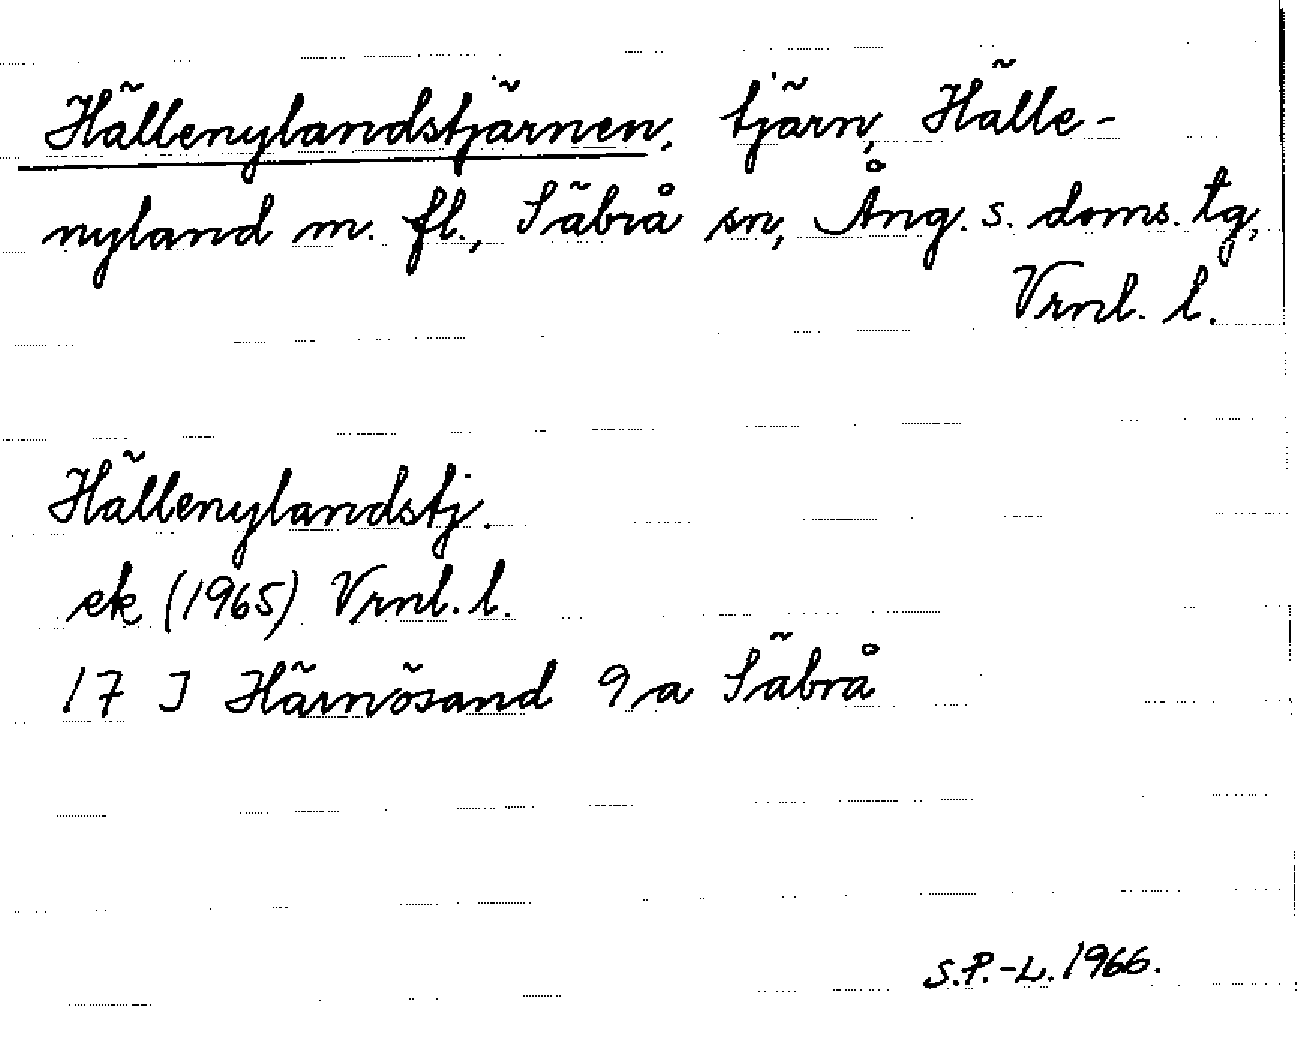 Hällenylandstjärnen, tjärn, Hälle-
nyland m. fl., Säbrå sn, Ång. s. doms. tg,
Vrnl. l.
Hällenylandstj.
ek (1965) Vrnl. l.
17 J Härnösand 9 a Säbrå
S.P.-L. 1966.